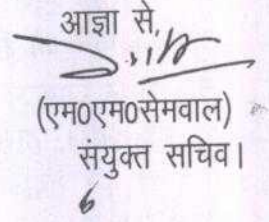 आज्ञा से,
(एम0एम0सेमवाल)
संयुक्त सचिव।
6